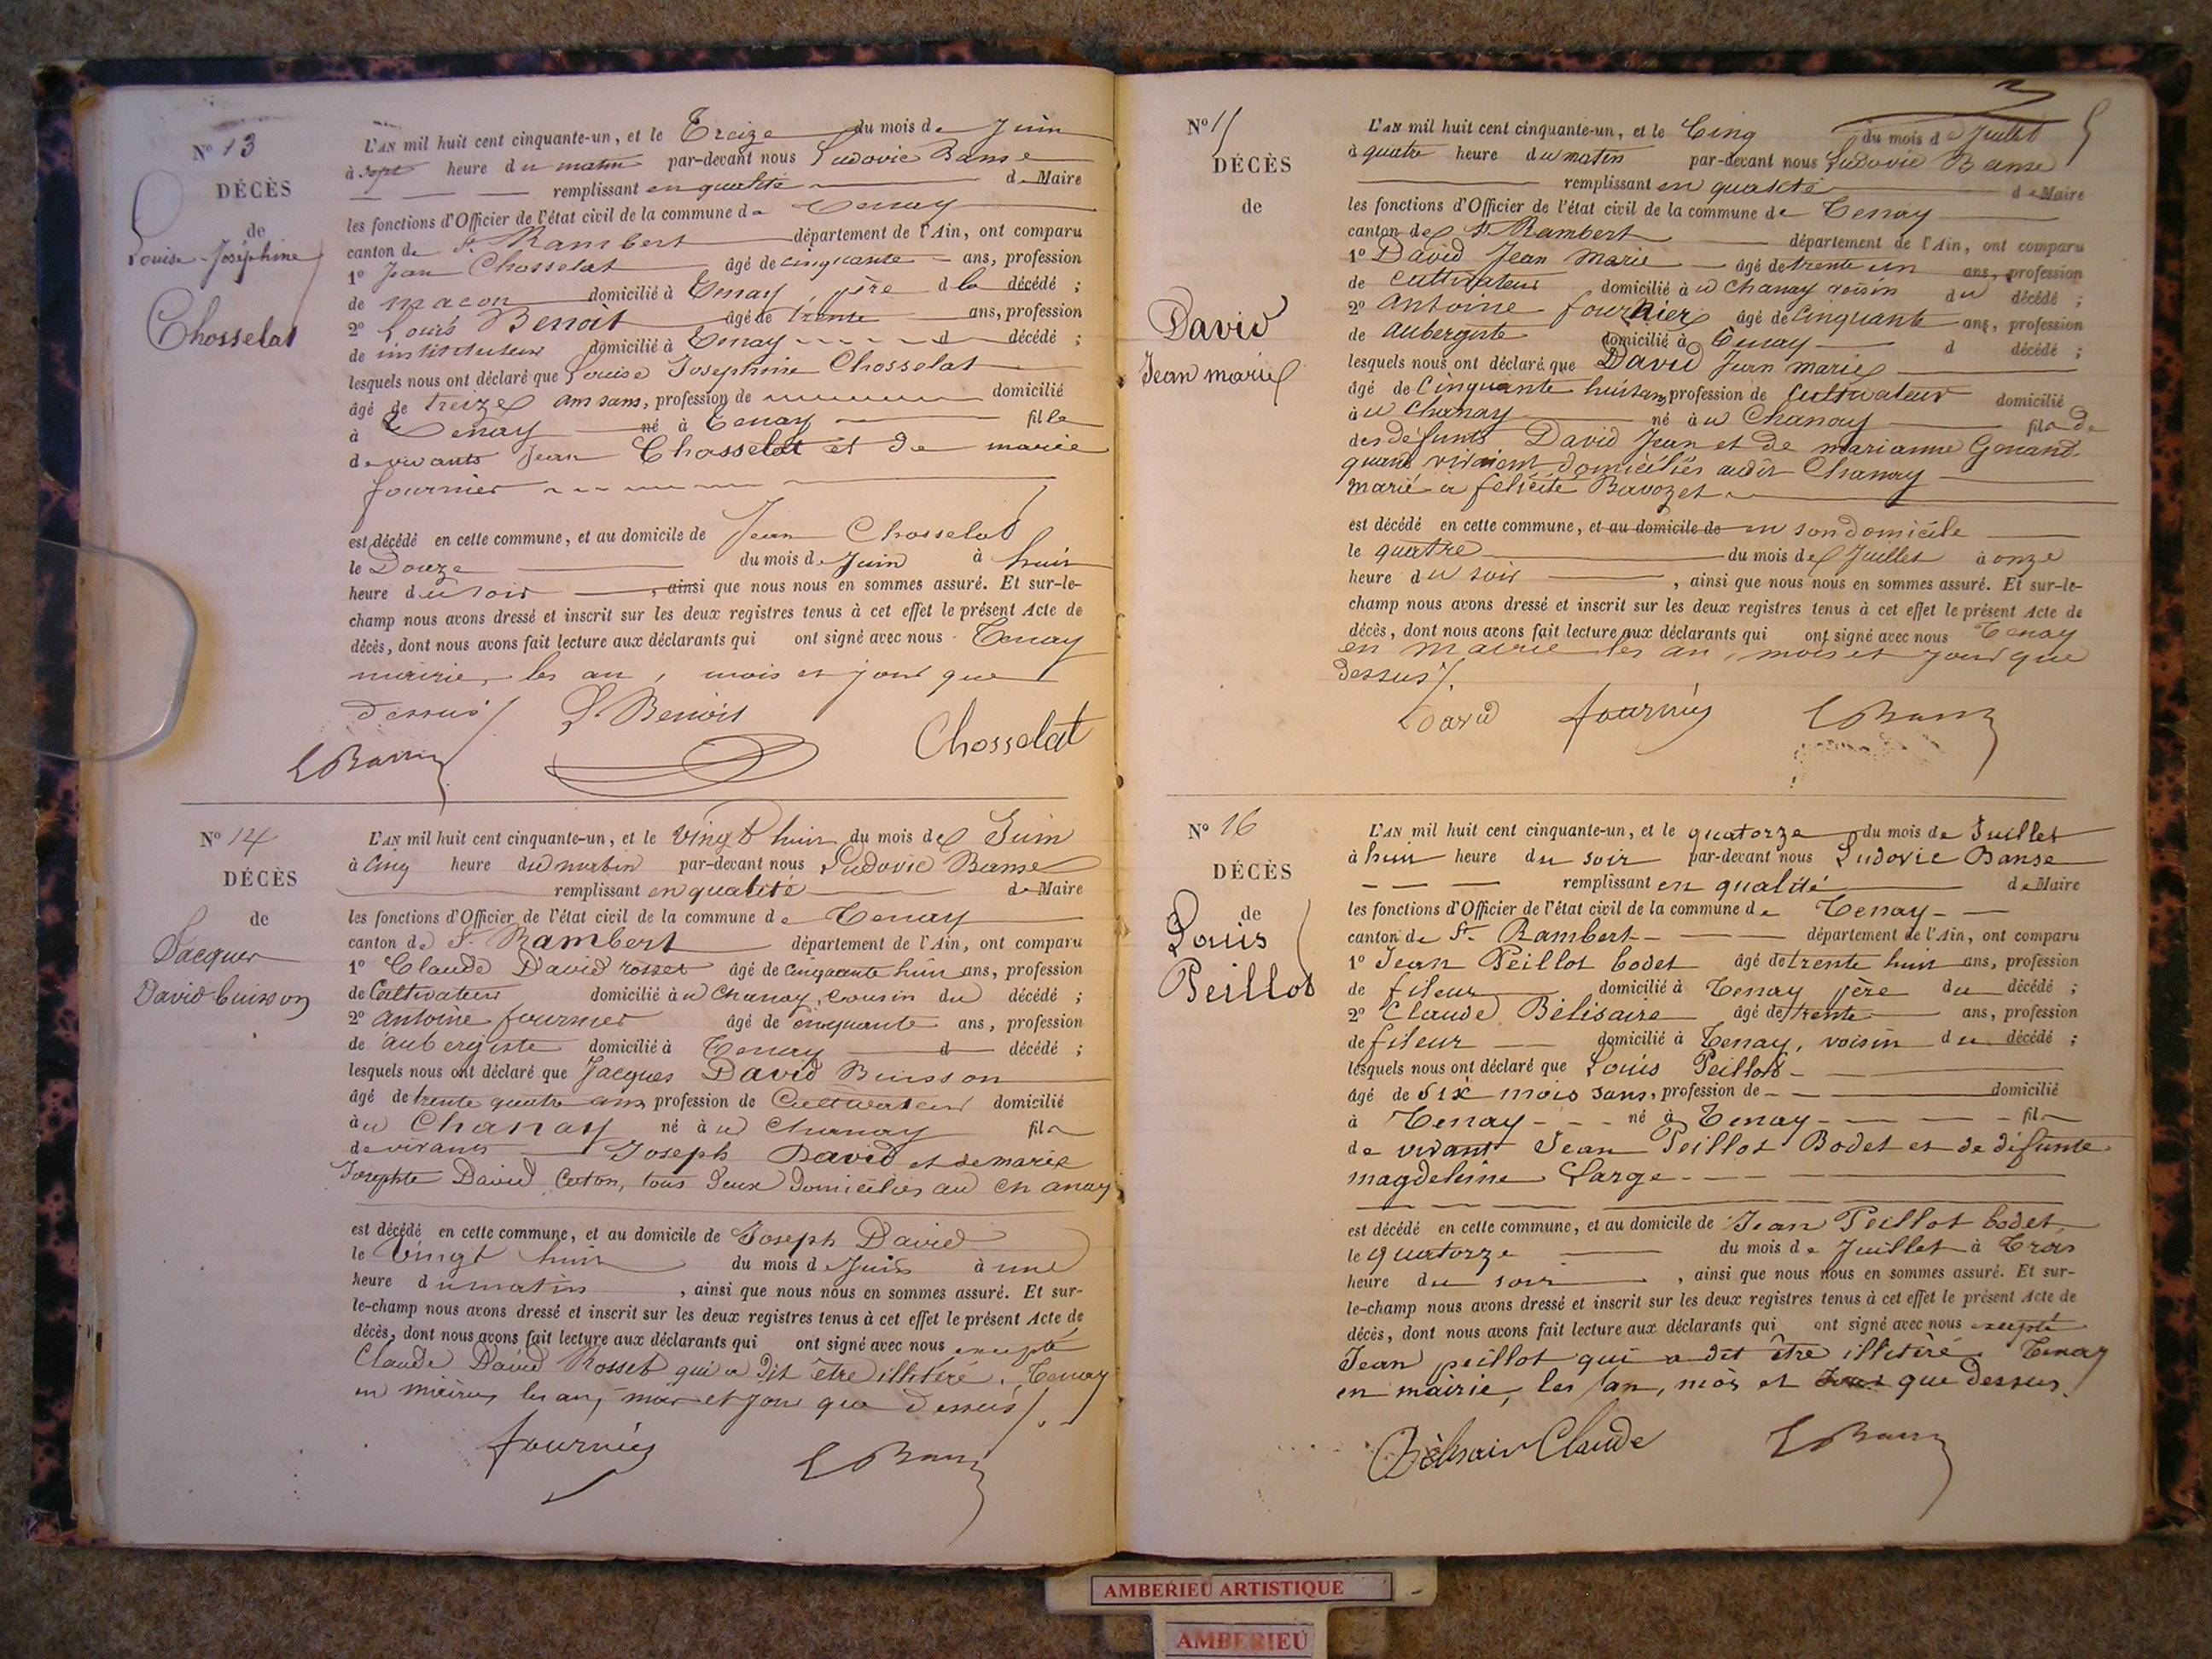 N° 13
DÉCÈS
de
Louise-Joséphine
Chosselat
L'AN mil huit cent cinquante-un, et le Treize du mois de Juin
à sept heure du matin par-devant nous Ludovic Banse
remplissant en qualité de Maire
les fonctions d'Officier de l'état civil de la commune de Tenay
canton de St. Rambert département de l'Ain, ont comparu
1° Jean Chosselat âgé de cinquante ans, profession
de maçon domicilié à Tenay, père d la décédé ;
2° Louis Benoit âgé de trente ans, profession
de instituteur domicilié à Tenay d décédé ;
lesquels nous ont déclaré que Louise Josephine Chosselat
âgé de treize ans sans, profession de domicilié
à Tenay né à Tenay fille
de vivants Jean Chosselat et de marie
fournier
est décédé en cette commune, et au domicile de Jean Chosselat
le Douze du mois de Juin à huit
heure du soir, ainsi que nous nous en sommes assuré. Et sur-le-
champ nous avons dressé et inscrit sur les deux registres tenus à cet effet le présent Acte de
décès, dont nous avons fait lecture aux déclarants qui ont signé avec nous. Tenay
mairie, les an, mois et jour que
dessus /. L. Benoit
Chosselat
L Banse
N° 14
DÉCÈS
de
Jacques
David buisson
L'AN mil huit cent cinquante-un, et le Vingt huit du mois de Juin
à cinq heure du matin par-devant nous Ludovic Banse
remplissant en qualité de Maire
les fonctions d'Officier de l'état civil de la commune de Tenay
canton de St. Rambert département de l'Ain, ont comparu
1° Claude David rosset âgé de cinquante huit ans, profession
de Cultivateur domicilié à u Chanay, cousin du décédé ;
2° antoine fournier âgé de cinquante ans, profession
de aubergiste domicilié à Tenay d décédé ;
lesquels nous ont déclaré que Jacques David Buisson
âgé de trente quatre ans profession de Cultivateur domicilié
à u Chanay né à u Chanay fils
de vivants Joseph David et de marie
Josephte David Coton, tous deux domiciliés au Chanay
est décédé en cette commune, et au domicile de Joseph David
le Vingt huit du mois de Juin à une
heure du matin, ainsi que nous nous en sommes assuré. Et sur-
le-champ nous avons dressé et inscrit sur les deux registres tenus à cet effet le présent Acte de
décès, dont nous avons fait lecture aux déclarants qui ont signé avec nous excepté
Claude David Rosset qui a dit être illitéré. Tenay
en mairie, les an, mois et jour que dessus /.
fournier L Banse
N° 15
DÉCÈS
de
David
Jean marie
L'AN mil huit cent cinquante-un, et le Cinq du mois de Juillet
à quatre heure du matin par-devant nous Ludovic Banse
remplissant en qualité de Maire
les fonctions d'Officier de l'état civil de la commune de Tenay
canton de St. Rambert département de l'Ain, ont comparu
1° David Jean Marie âgé de trente un ans, profession
de cultivateur domicilié à u Chanay voisin du décédé ;
2° antoine fournier âgé de cinquante ans, profession
de aubergiste domicilié à Tenay d décédé ;
lesquels nous ont déclaré que David Jean marie
âgé de cinquante huit ans, profession de cultivateur domicilié
à u Chanay né à u Chanay fils de
des défunts David Jean et de marianne Genand
quand vivaient domiciliés audit Chanay
marié à félicité Bavozet
est décédé en cette commune, et au domicile de en son domicile
le quatre du mois de Juillet à onze
heure du soir, ainsi que nous nous en sommes assuré. Et sur-le-
champ nous avons dressé et inscrit sur les deux registres tenus à cet effet le présent Acte de
décès, dont nous avons fait lecture aux déclarants qui ont signé avec nous Tenay
en mairie les an, mois et jour que
dessus /.
David fournier L Banse
N° 16
DÉCÈS
de
Louis
Peillot
L'AN mil huit cent cinquante-un, et le quatorze du mois de Juillet
à huit heure du soir par-devant nous Ludovic Banse
remplissant en qualité de Maire
les fonctions d'Officier de l'état civil de la commune de Tenay
canton de St. Rambert département de l'Ain, ont comparu
1° Jean Peillot bodet âgé de trente huit ans, profession
de fileur domicilié à Tenay père du décédé ;
2° Claude Bélisaire âgé de trente ans, profession
de fileur domicilié à Tenay, voisin du décédé ;
lesquels nous ont déclaré que Louis Peillot
âgé de six mois sans, profession de domicilié
à Tenay né à Tenay fils
de vivant Jean Peillot Bodet et de défunte
magdeleine Large
est décédé en cette commune, et au domicile de Jean Peillot bodet
le quatorze du mois de Juillet à Trois
heure du soir, ainsi que nous nous en sommes assuré. Et sur-
le-champ nous avons dressé et inscrit sur les deux registres tenus à cet effet le présent Acte de
décès, dont nous avons fait lecture aux déclarants qui ont signé avec nous excepté
Jean peillot qui a dit être illitéré. Tenay
en mairie, les an, mois et jour que dessus.
Bélisair Claude L Banse
AMBERIEU ARTISTIQUE
AMBERIEU